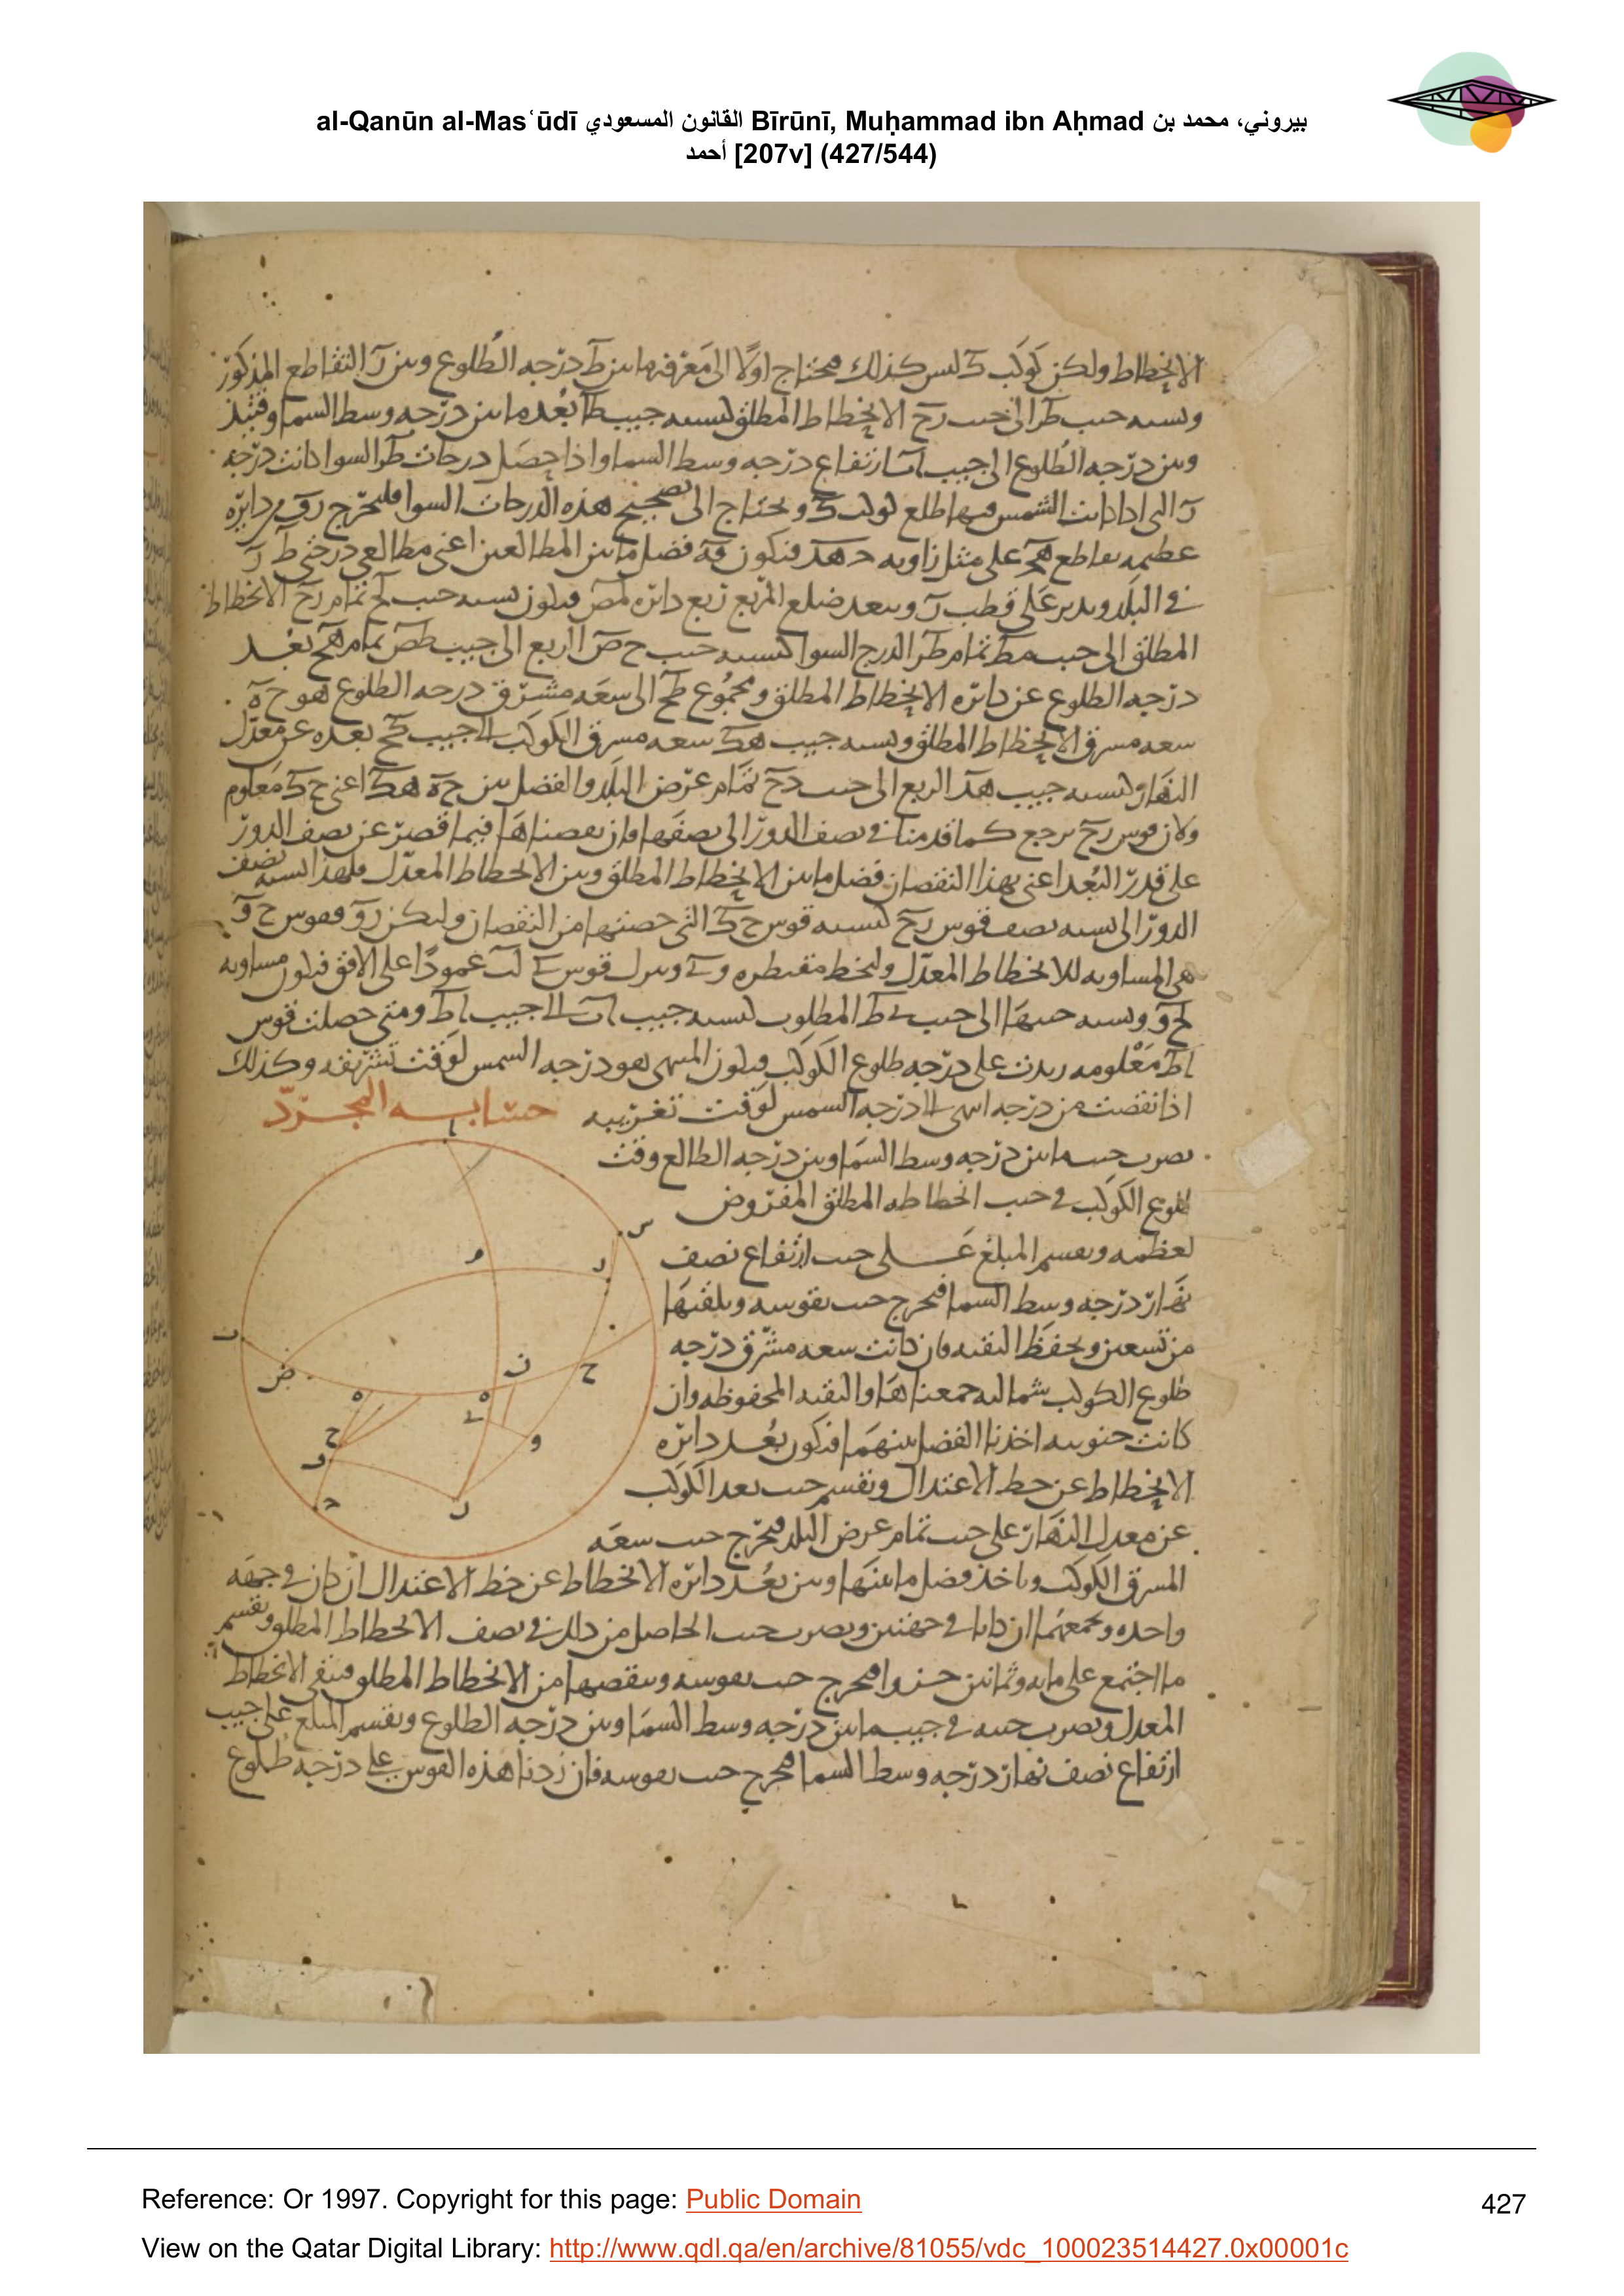 al-Qanūn al-Masʿūdī القانون المسعودي Bīrūnī, Muḥammad ibn Aḥmad بيروني، محمد بن
أحمد [207v] (427/544)
الانحطاط ولكن كوكب ك ليس كذلك محتاج اولا الى معرفة ما بين ط درجه الطلوع وبين ر التقاطع المذكور
ونسبه جيب طر الى جيب رح الانحطاط المطلق كنسبه جيب طا بعد ما بين درجه وسط السما وقتئذ
وبين درجه الطلوع الى جيب اب ارتفاع درجه وسط السما واذا حصل درجات طر السوا كانت درجه
ر التى اذا كانت الشمس فيها طلع كوكب ك ونحتاج الى تصحيح هذه الدرجات السوا فليخرج رق من دايره
عظيمه تقاطع هح على مثل زاويه د هح فتكون قه فضل ما بين المطالعين اعنى مطالعى درجتى ط ر
فى البلد وندير على قطب ر وببعد ضلع المربع ربع دايره لمص فيكون نسبه جيب لح تمام رح الانحطاط
المطلق الى جيب مط تمام طر الدرج السوا كنسبه جيب ح ص الربع الى جيب طص تمام هح بعد
درجه الطلوع عن دايره الانحطاط المطلق ومجموع طح الى سعه مشرق درجه الطلوع هو ح ه
سعه مشرق الانحطاط المطلق ونسبه جيب هك سعه مشرق الكوكب الى جيب كح بعده عن معدل
النهار كنسبه جيب هد الربع الى جيب دح تمام عرض البلد والفضل بين ح ه هك اعنى ح ك معلوم
ولان قوس رح يرجع كما قدمنا فى نصف الدور الى نصفها فان نقصناها فيما قصر عن نصف الدور
على قدر البعد اعنى بهذا النقصان فضل ما بين الانحطاط المطلق وبين الانحطاط المعدل فلهذا نسبه نصف
الدور الى نسبه نصف قوس رح كنسبه قوس ح ك التى حصتها من النقصان وليكن رو فقوس ح و
هى المساويه للانحطاط المعدل ولنخط مقنطره وى وننزل قوس ى لب عمودا على الافق فيكون مساويه
لح و ونسبه جيبها الى جيب ى ط المطلوب كنسبه جيب اب الى جيب اط ومتى حصلت قوس
اط معلومه زيدت على درجه طلوع الكوكب فيكون المنتهى هو درجه الشمس لوقت تشريقه وكذلك
اذا نقصت من درجه انتهى الى درجه الشمس لوقت تغريبه حسابه المجرد
نضرب جيب ما بين درجه وسط السما وبين درجه الطالع وقت
طلوع الكوكب فى جيب انحطاطه المطلق المفروض
لعظمه ونقسم المبلغ على جيب ارتفاع نصف
نهار درجه وسط السما فيخرج جيب نقوسه ونلقيها
من تسعين ونحفظ البقيه فان كانت سعه مشرق درجه
طلوع الكوكب شماليه جمعناها والبقيه المحفوظه وان
كانت جنوبيه اخذنا الفضل بينهما فيكون بعد دايره
الانحطاط عن خط الاعتدال ونقسم جيب بعد الكوكب
عن معدل النهار على جيب تمام عرض البلد فيخرج جيب سعه
المشرق الكوكب وناخذ فضل ما بينها وبين بعد دايره الانحطاط عن خط الاعتدال ان كان فى جهه
واحده ونجمعهما ان كانا فى جهتين ونضرب جيب الحاصل من ذلك فى نصف الانحطاط المطلق ونقسم
ما اجتمع على مايه وثمانين جزوا فيخرج جيب نقوسه وننقصها من الانحطاط المطلق فيبقى الانحطاط
المعدل ونضرب جيبه فى جيب ما بين درجه وسط السما وبين درجه الطلوع ونقسم المبلغ على جيب
ارتفاع نصف نهار درجه وسط السما فيخرج جيب نقوسه فان زدنا هذه القوس على درجه طلوع
Reference: Or 1997. Copyright for this page: Public Domain
427
View on the Qatar Digital Library: http://www.qdl.qa/en/archive/81055/vdc_100023514427.0x00001c